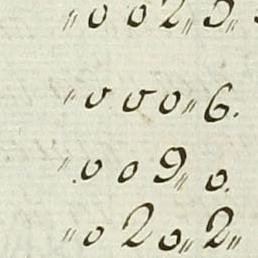 "002"5"
"000"6.
"009"0.
"020"2"